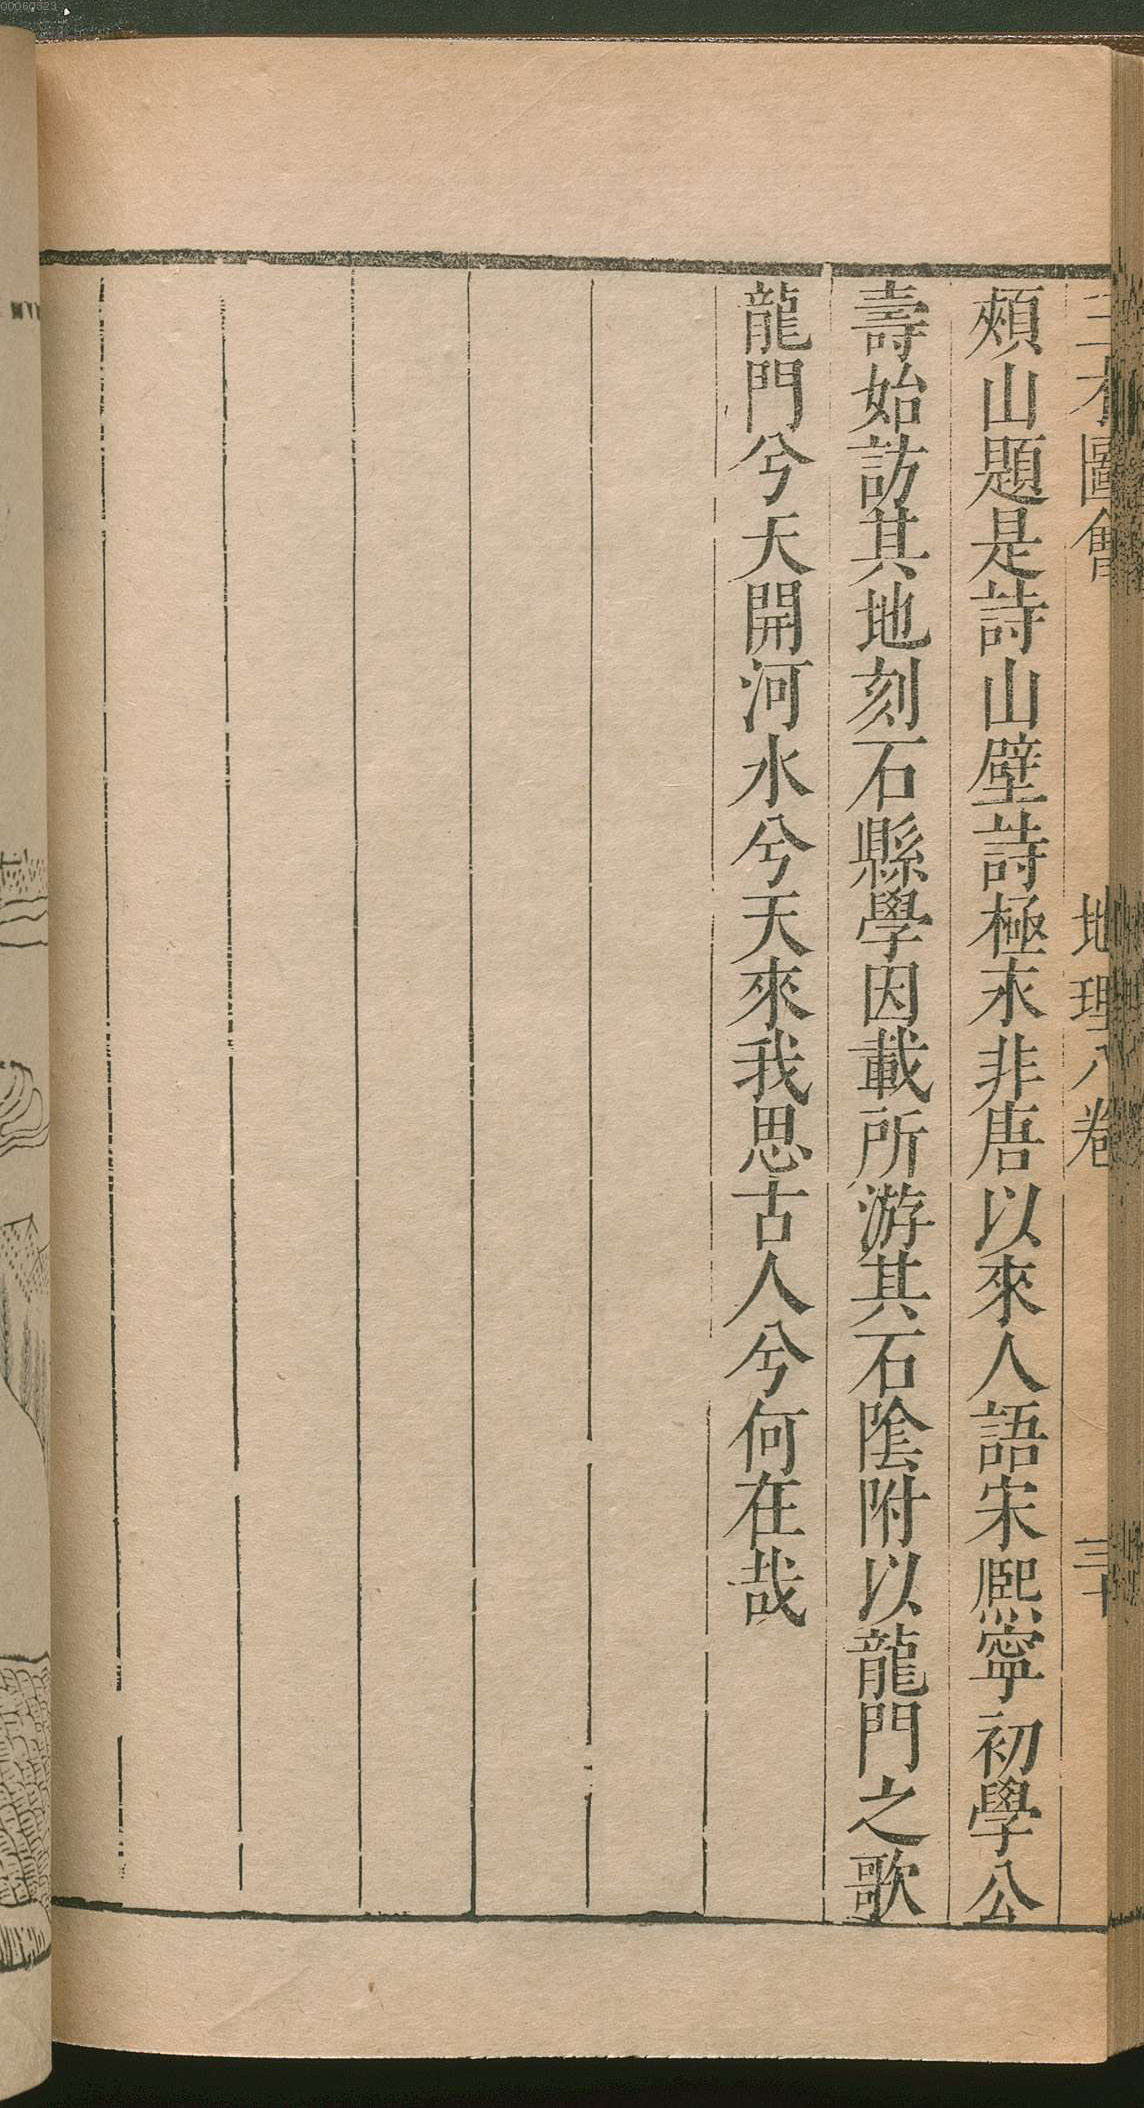 00060523
三才圖會 地理八卷 三十
頰山題是詩山壁詩極末非唐以來人語宋熙寧初學公
壽始訪其地刻石縣學因載所游其石陰附以龍門之歌
龍門兮天開河水兮天來我思古人兮何在哉